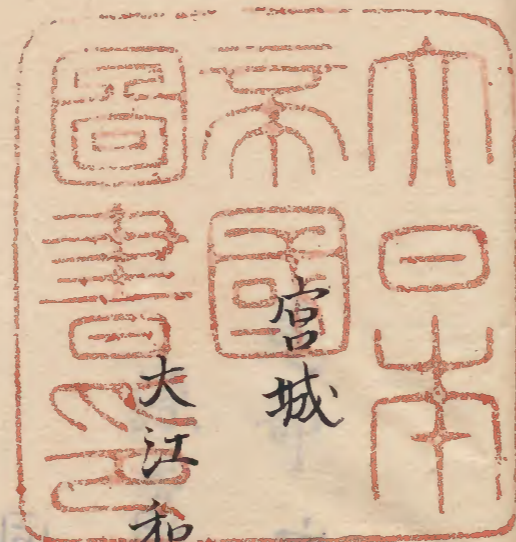 大日本
帝國
圖書印
宮城
大江和